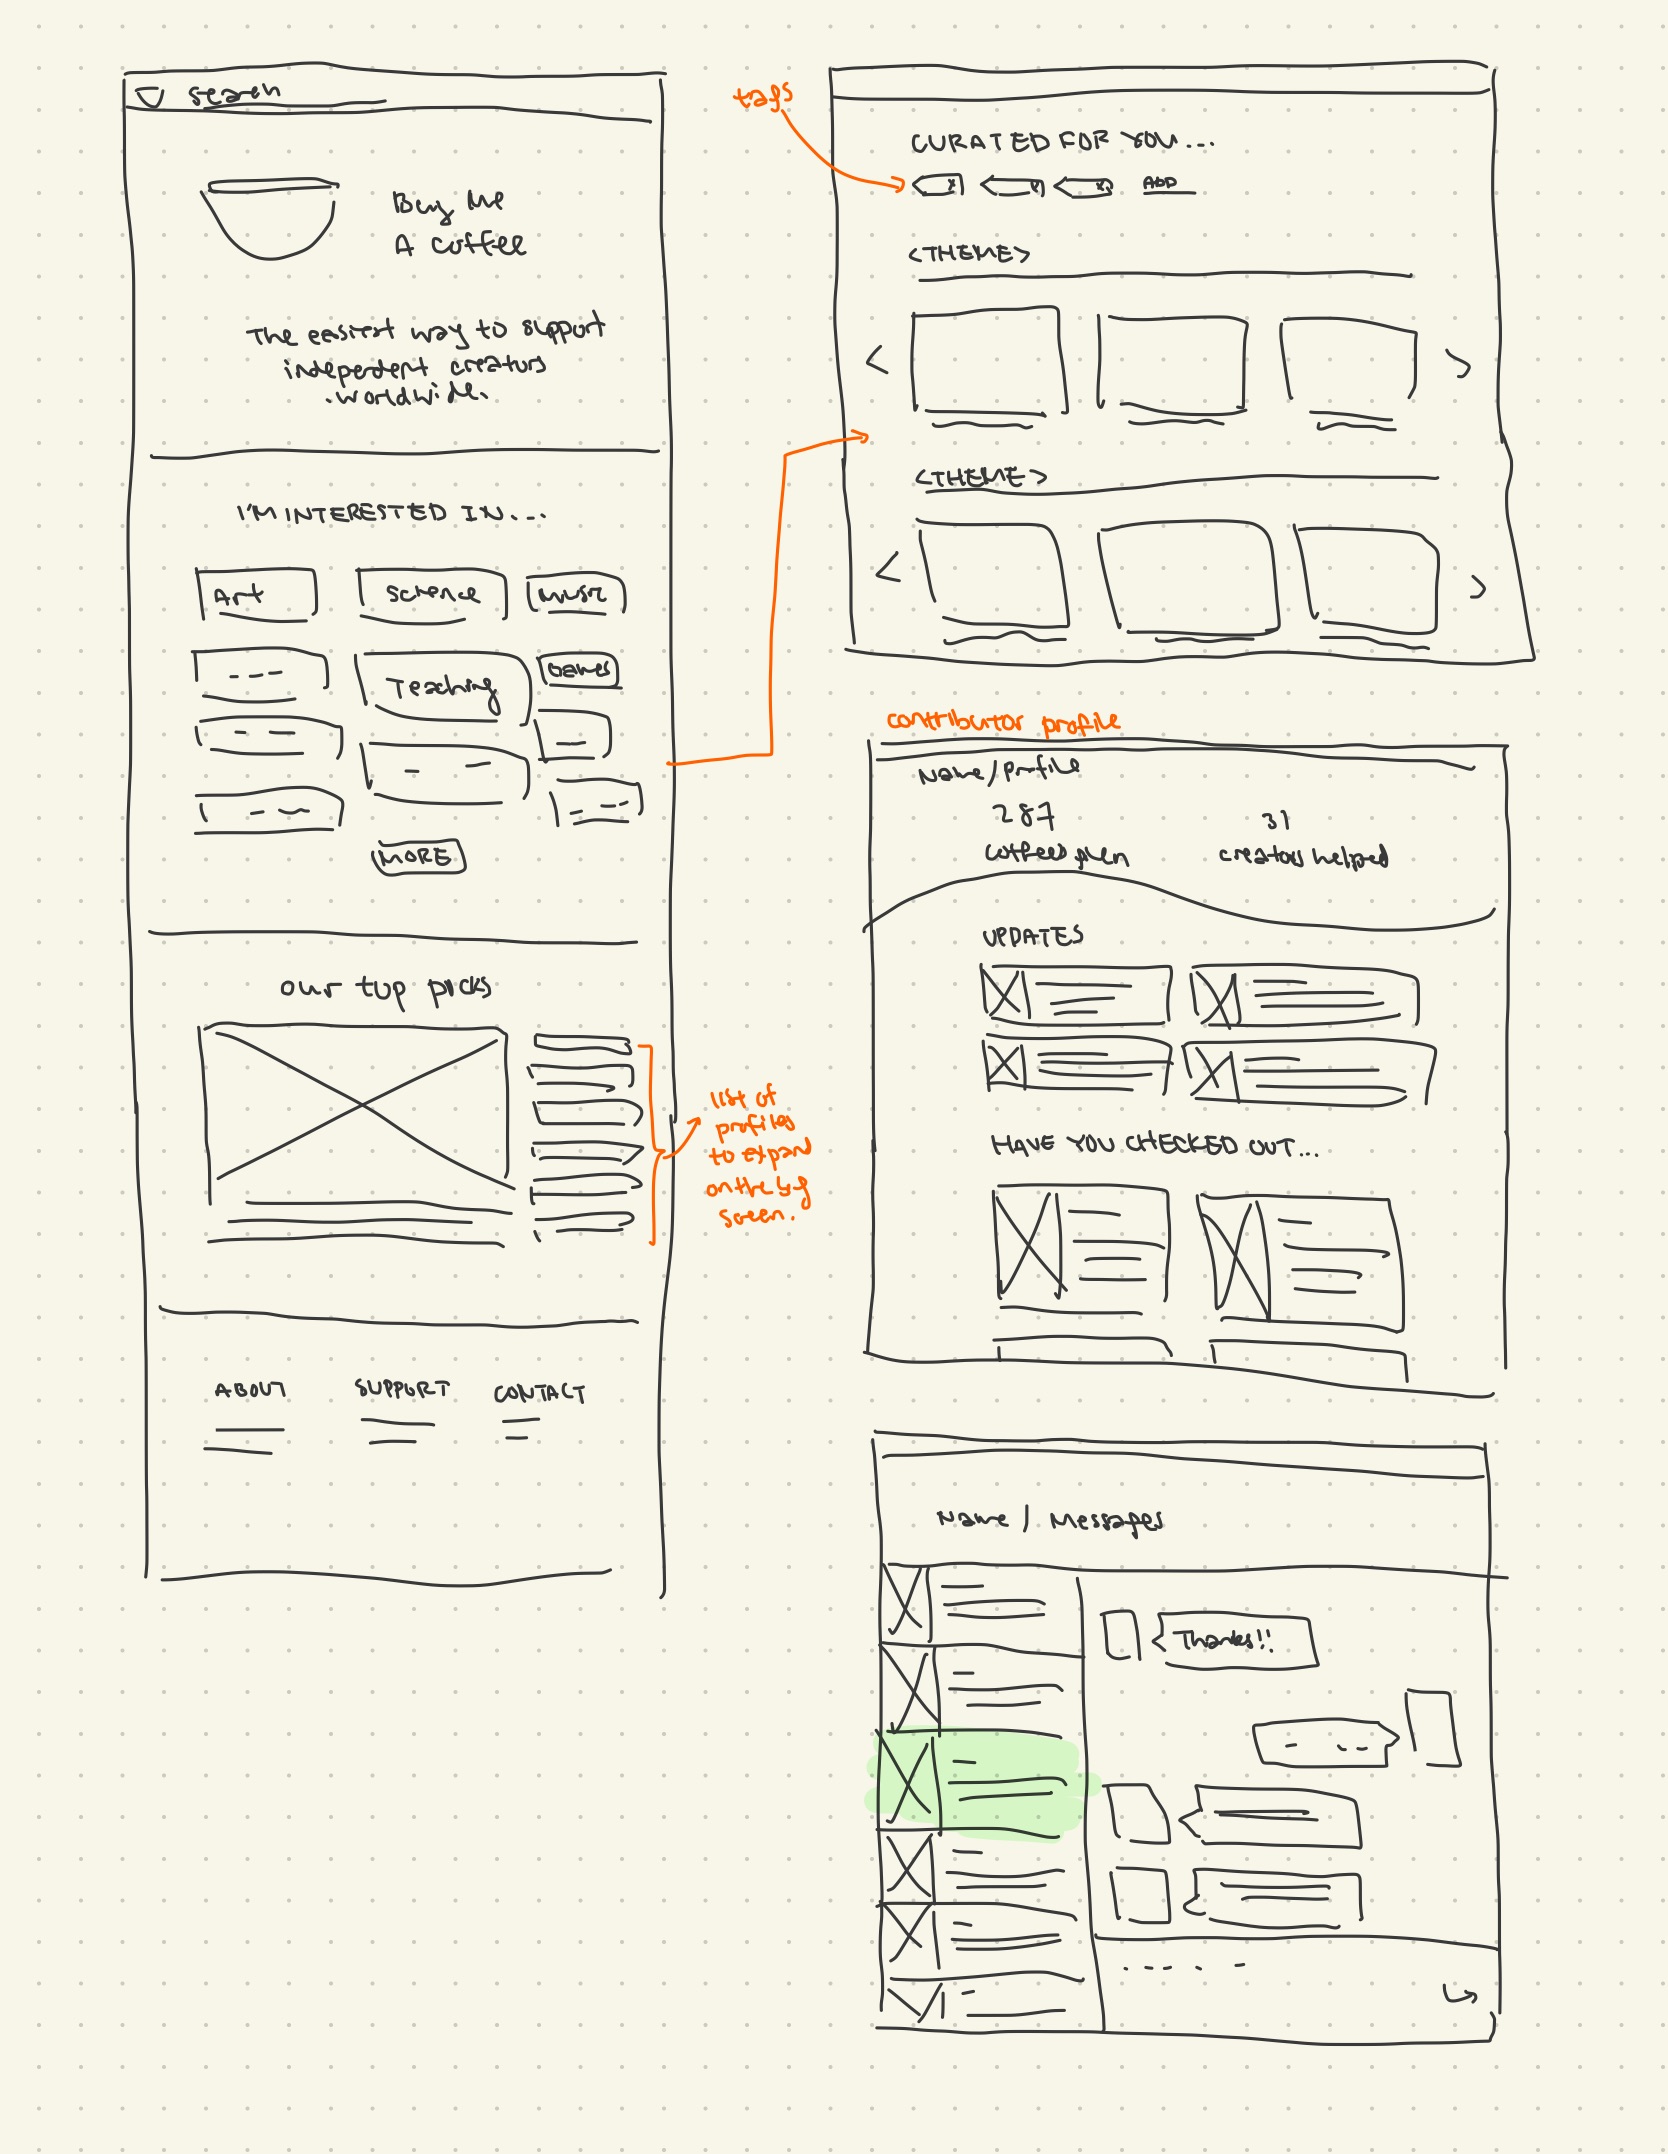 search
Buy Me
A coffee
The easiest way to support
independent creators
worldwide.
I'M INTERESTED IN...
Art
Science
music
Teaching
Games
MORE
our top picks
list of
profiles
to expand
on the
screen.
ABOUT
SUPPORT
CONTACT
tags
CURATED FOR YOU...
x
x
x
ADD
<THEME>
<THEME>
contributor profile
Name/profile
287
31
coffees
creators helped
UPDATES
HAVE YOU CHECKED OUT...
Name | Messages
Thanks!!